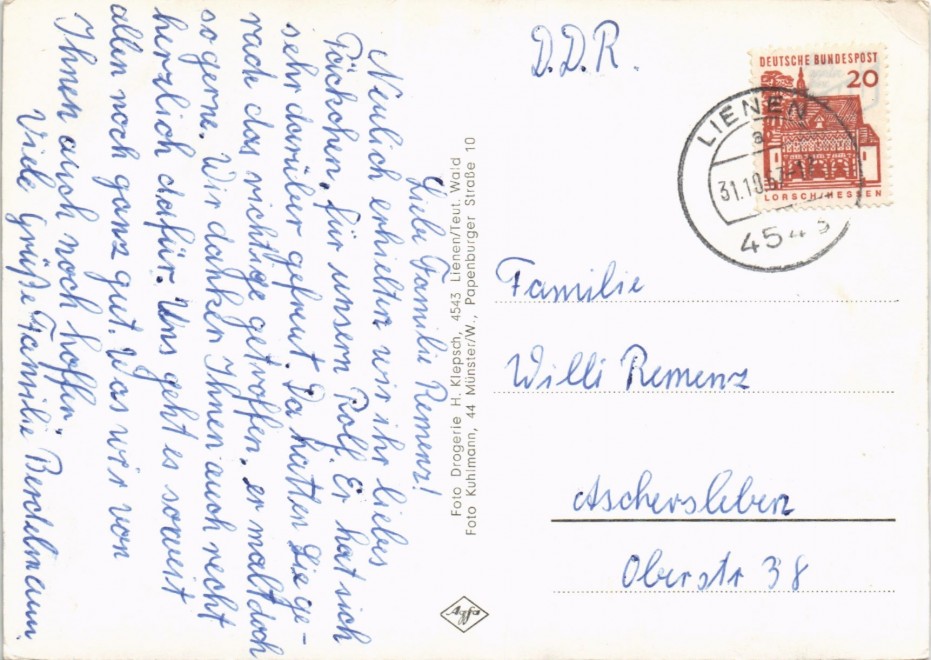 Liebe Familie Remenz!
Neulich erhielten wir ihr liebes
Päckchen, für unsern Rolf. Er hat sich
sehr darüber gefreut. Da hatten Sie ge-
rade das richtige getroffen, er malt doch
so gerne. Wir danken Ihnen auch recht
herzlich dafür. Uns geht es soweit
allen noch ganz gut. Was wir von
Ihnen auch noch hoffen
Viele Grüße Familie
Foto Drogerie H. Klepsch, 4543 Lienen/Teut. Wald
Foto Kuhlmann, 44 Münster/W., Papenburger Straße 10
Agfa
D.D.R.
DEUTSCHE BUNDESPOST
20
LORSCH/HESSEN
LIENEN
a
4543
Familie
Willi Remenz
Aschersleben
Oberstr 38